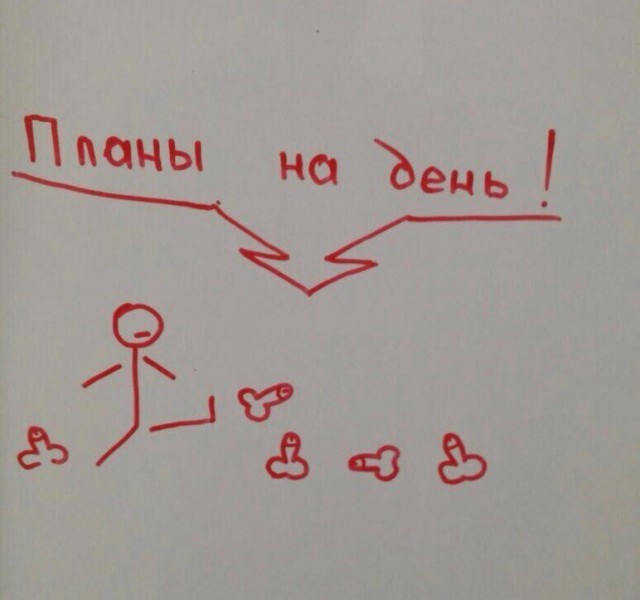 Планы на день!